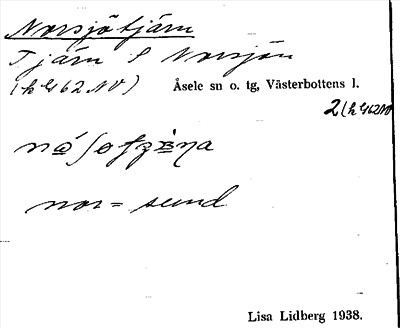 Norsjötjärn
Tjärn S Norsjön
(h 462 NV) Åsele sn o. tg, Västerbottens l.
2(h 462 NV
nor = sund
Lisa Lidberg 1938.